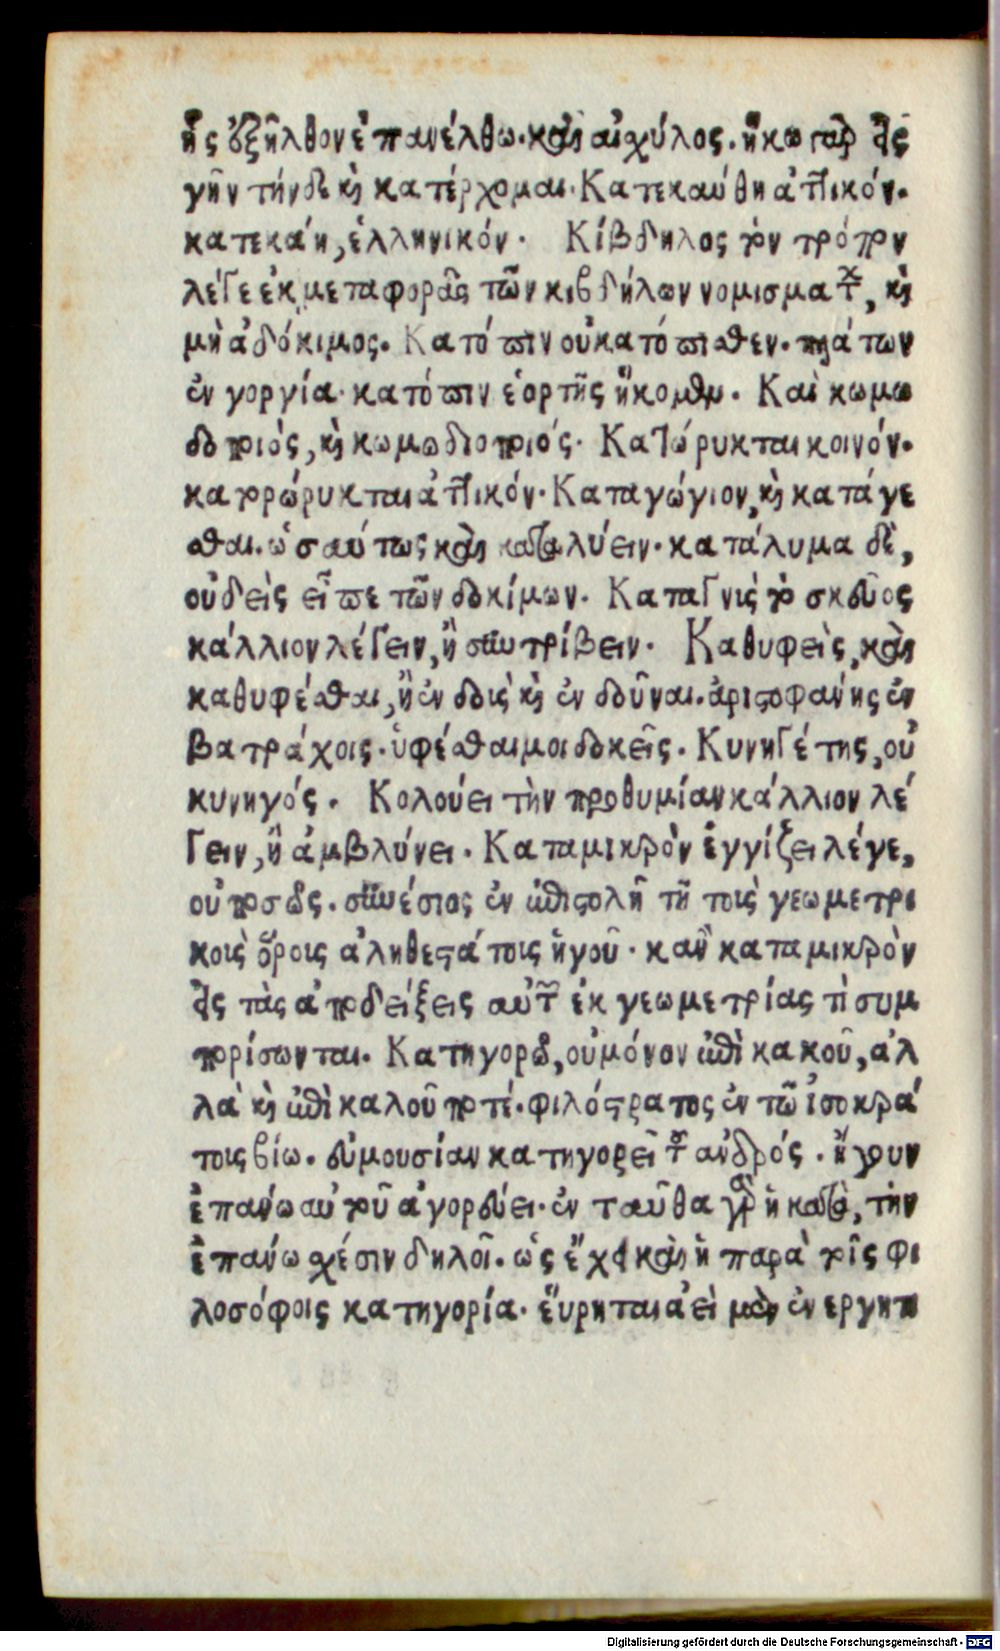 ἧς ἐξῆλθον ἐπανέλθω. καὶ αἰσχύλος. ἥκω γὰρ εἰς
γῆν τήνδε καὶ κατέρχομαι. Κατεκαύθη ἀττικόν.
κατεκάη, ἑλληνικόν. Κίβδηλος τὸν τρόπον
λέγε ἐκ μεταφορᾶς τῶν κιβδήλων νομισμάτ, καὶ
μὴ ἀδόκιμος. Κατόπιν οὐ κατόπισθεν. πλάτων
ἐν γοργία. κατόπιν ἑορτῆς ἥκομεν. Καὶ κωμω
δοποιός, καὶ κωμωδιοποιός. Κατώρυκται κοινόν.
κατορώρυκται ἀττικόν. Καταγώγιον, καὶ κατάγε
σθαι. ὡσαύτως καὶ καταλύειν. κατάλυμα δὲ,
οὐδεὶς εἶπε τῶν δοκίμων. Καταγνὶς τὸ σκεῦος
κάλλιον λέγειν, ἢ συντρίβειν. Καθυφεὶς, καὶ
καθυφέσθαι, ἢ ἐνδοὶς καὶ ἐνδοῦναι. ἀριστοφάνης ἐν
βατράχοις. ὑφέσθαι μοι δοκεῖς. Κυνηγέτης, οὐ
κυνηγός. Κολούει τὴν προθυμίαν κάλλιον λέ
γειν, ἢ ἀμβλύνει. Καταμικρὸν ἐγγίζει λέγε,
οὐ ποσῶς. συνέσιος ἐν ἐπιστολῇ τῇ τοῖς γεωμετρι
κοῖς ὅροις ἀληθεστάτοις ἡγοῦ. κἂν καταμικρὸν
εἰς τὰς ἀποδείξεις αὐτ ἐκ γεωμετρίας τὶ συμ
πορίσωνται. Κατηγορῶ, οὐ μόνον ἐπὶ κακοῦ, ἀλ
λὰ καὶ ἐπὶ καλοῦ ποτέ. φιλόστρατος ἐν τῶ ἰσοκρά
τοις βίω. εὐμουσίαν κατηγορεῖ τοῦ ἀνδρός. ἤγουν
ἐπάνω αὐτοῦ ἀγορεύει. ἐνταῦθα γὰρ ἡ κατὰ, τὴν
ἐπάνω σχέσιν δηλοῖ. ὡς ἔχει καὶ ἡ παρὰ τοῖς φι
λοσόφοις κατηγορία. ἕυρηται ἀεὶ μὲν ἐνεργητι
Digitalisierung gefördert durch die Deutsche Forschungsgemeinschaft - DFG